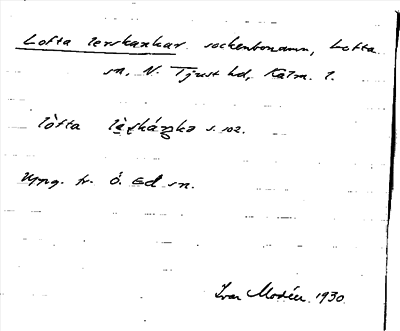 Lofta lerskankar. sockenbonamn, Lofta
sn, N. Tjust hd, Kalm. l.
lòfta lèʂkáŋka s. 102.
Uppg. fr. Ö. Ed sn.
Ivar Modéer 1930